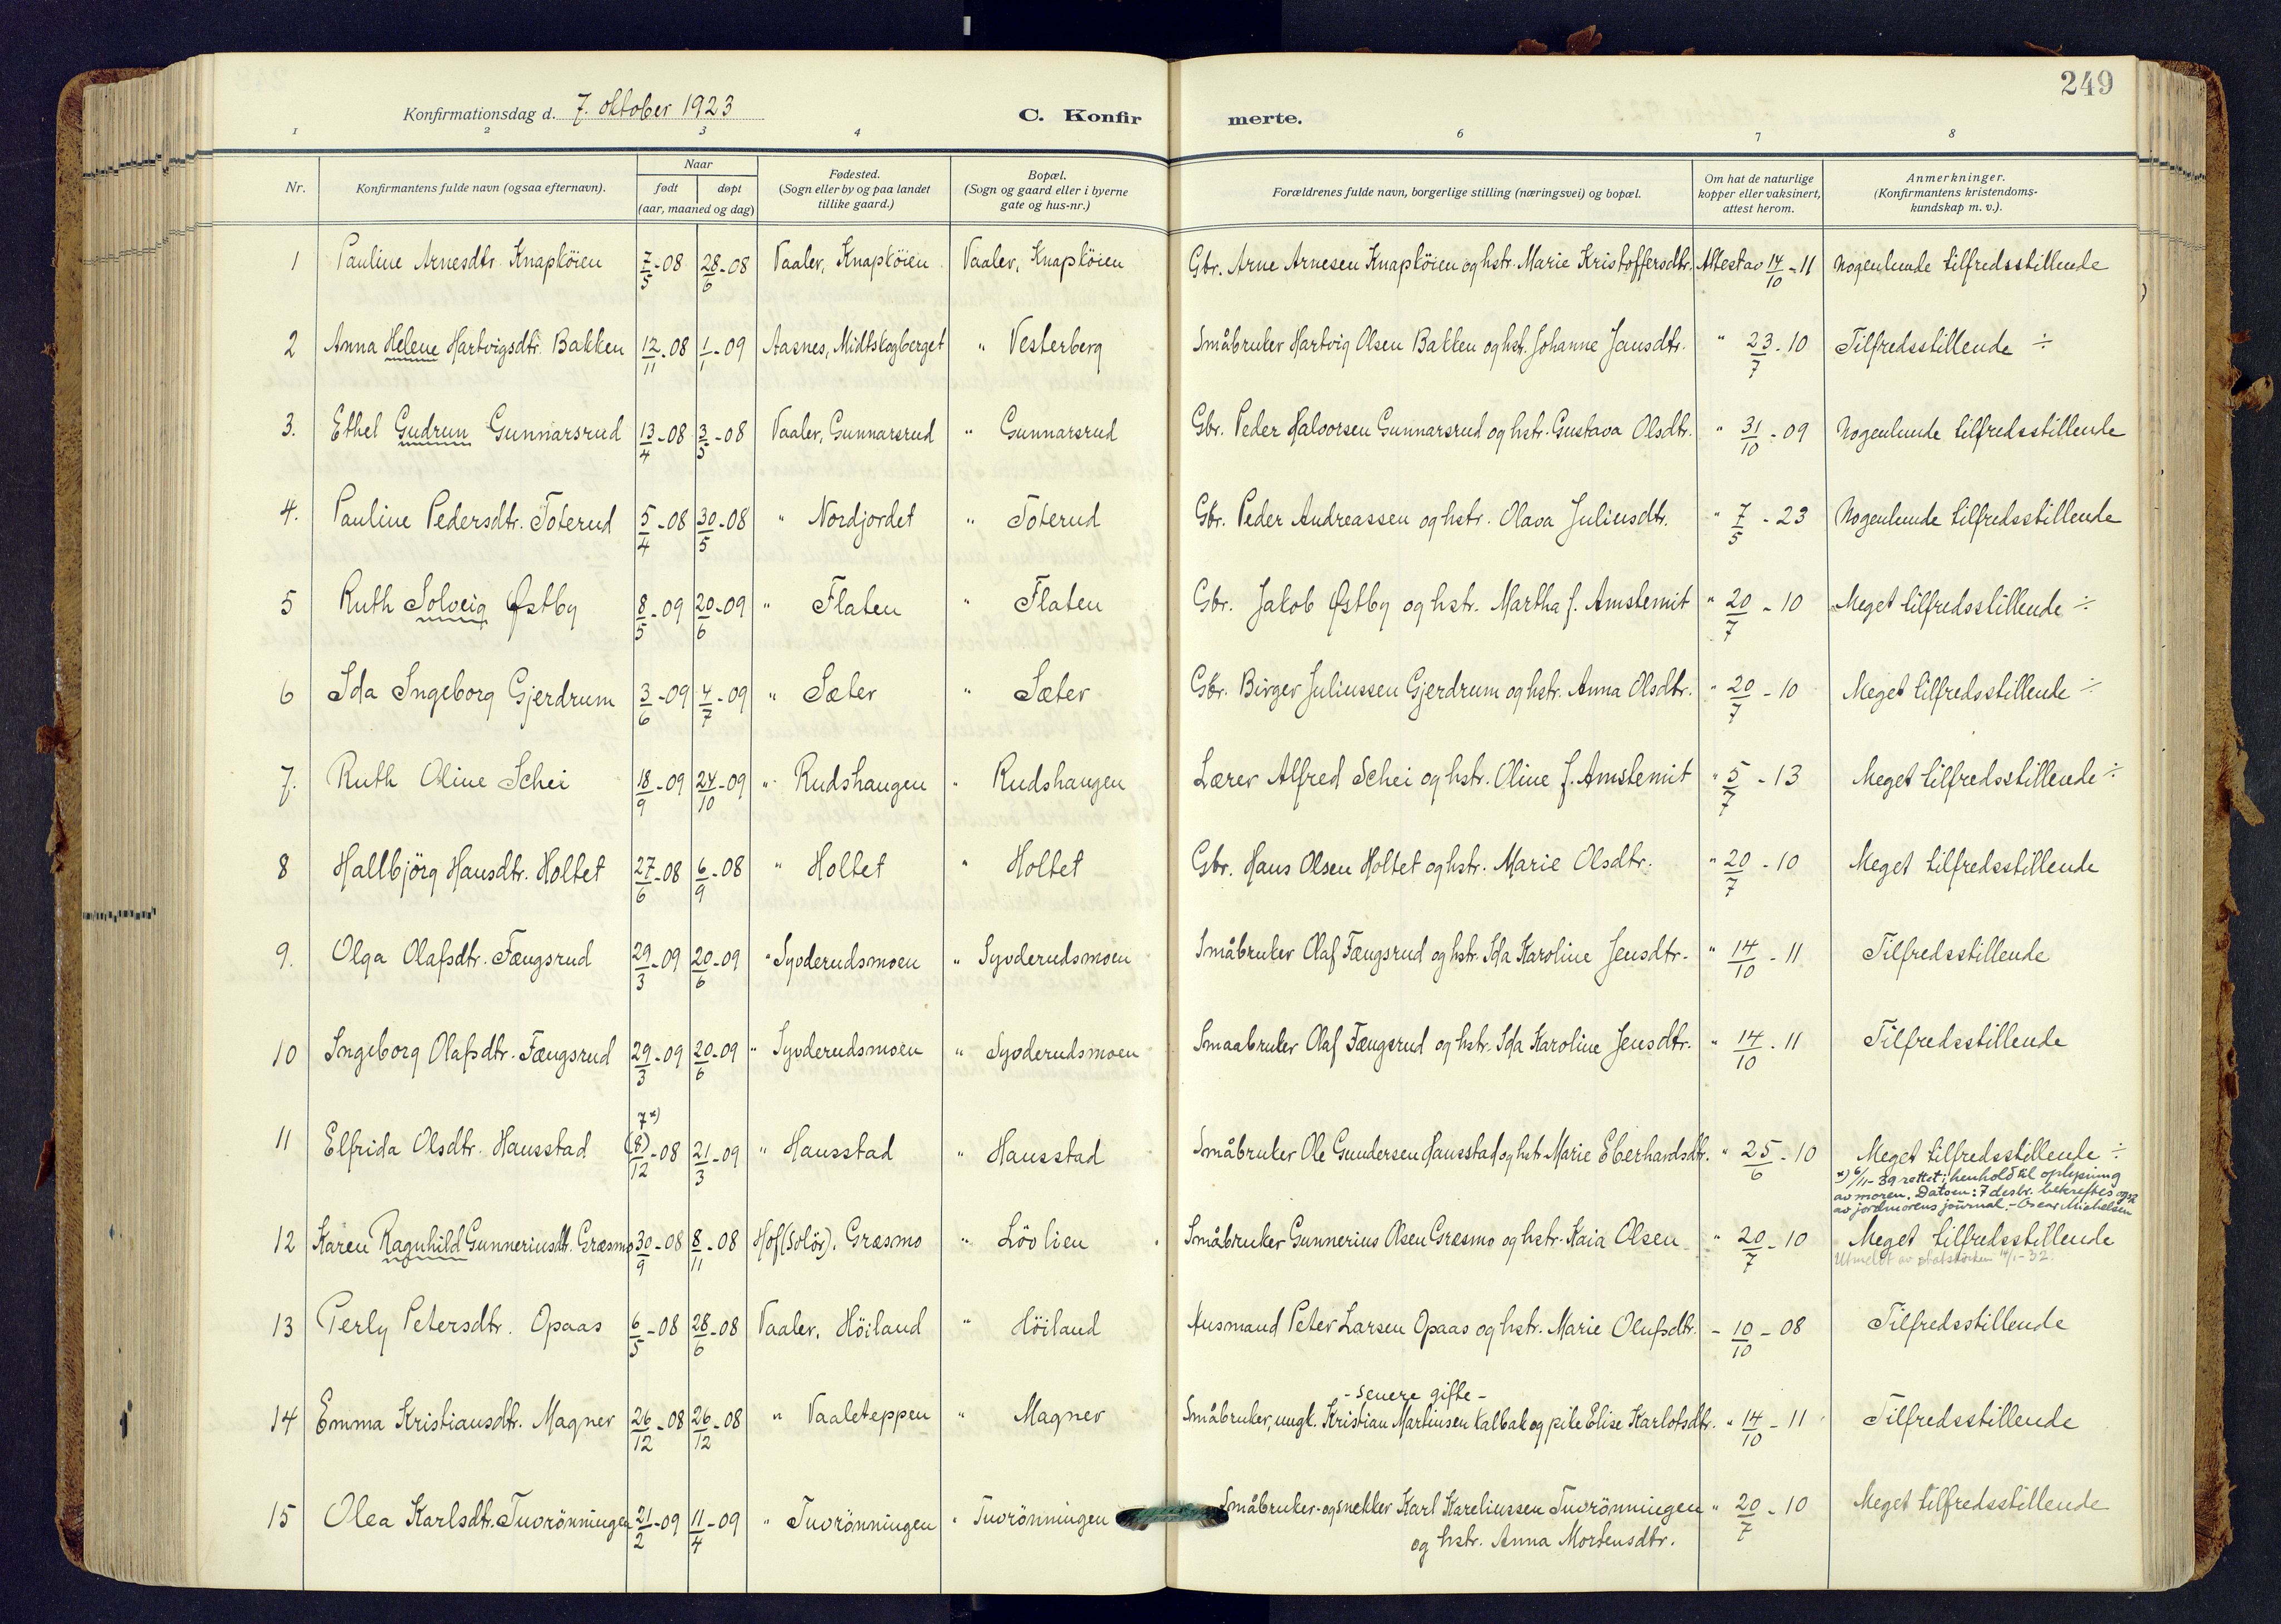 249
Konfirmationsdag d. 7. oktober 1923 C. Konfirmerte.
1 2 3 4 6 7 8
Nr. Konfirmantens fulde navn (ogsaa efternavn). Naar født døpt (aar, maaned og dag) Fødested. (Sogn eller by og paa landet tillike gaard.) Bopæl. (Sogn og gaard eller i byerne gate og hus-nr.) Forældrenes fulde navn, borgerlige stilling (næringsvei) og bopæl. Om hat de naturlige kopper eller vaksinert, attest herom. Anmerkninger. (Konfirmantens kristendoms-kundskap m. v.).
1 Pauline Arnesdtr. Knapköien 7/5-08 28/6-08 Vaaler, Knapköien Vaaler, Knapköien Gbr. Arne Arnesen Knapköien og hstr. Marie Kristoffersdtr. Attest av 14/10-11 Nogenlunde tilfredsstillende
2 Anna Helene Hartvigsdtr. Bakken 12/11-08 1/1-09 Aasnes, Midtskogberget " Vesterberg Småbruker Hartvig Olsen Bakken og hstr. Johanne Jansdtr. " 23/7-10 Tilfredsstillende ÷
3. Ethel Gudrun Gunnarsrud 13/4-08 3/5-08 Vaaler, Gunnarsrud " Gunnarsrud Gbr. Peder Halvorsen Gunnarsrud og hstr. Gustava Olsdtr. " 31/10-09 Nogenlunde tilfredsstillende
4. Pauline Pedersdtr. Toterud 5/4-08 30/5-08 " Nordjordet " Toterud Gbr. Peder Andreassen og hstr. Olava Juliusdtr. " 7/5-23 Nogenlunde tilfredsstillende
5 Ruth Solveig Østby 8/5-09 20/6-09 " Flaten " Flaten Gbr. Jakob Østby og hstr. Martha f. Amstemit " 20/7-10 Meget tilfredsstillende ÷
6 Ida Ingeborg Gjerdrum 3/6-09 4/7-09 " Sæter " Sæter Gbr. Birger Juliussen Gjerdrum og hstr. Anna Olsdtr. " 20/7-10 Meget tilfredsstillende ÷
7. Ruth Oline Schei 18/9-09 24/10-09 " Rudshaugen " Rudshaugen Lærer Alfred Schei og hstr. Oline f. Amstemit " 5/7-13 Meget tilfredsstillende ÷
8 Hallbjörg Hansdtr. Holtet 27/6-08 6/9-08 " Holtet " Holtet Gbr. Hans Olsen Holtet og hstr. Marie Olsdtr. " 20/7-10 Meget tilfredsstillende
9. Olga Olafsdtr. Fængsrud 29/3-09 20/6-09 " Syverudsmoen " Syverudsmoen Småbruker Olaf Fængsrud og hstr. Ida Karoline Jensdtr. " 14/10-11 Tilfredsstillende
10 Ingeborg Olafsdtr. Fængsrud 29/3-09 20/6-09 " Syverudsmoen " Syverudsmoen Smaabruker Olaf Fængsrud og hstr. Ida Karoline Jensdtr. " 14/10-11 Tilfredsstillende
7 x)
11 Elfrida Olsdtr. Hansstad (8)/12-08 21/3-09 " Hansstad " Hansstad Småbruker Ole Gundersen Hansstad og hstr. Marie Eberhardsdtr. " 25/6-10 Meget tilfredsstillende ÷
x) 6/11-39 rettet i henhold til oplysning
av moren. Datoen: 7 desbr. bekreftes også
av jordmorens journal. - Oscar Michelsen
12 Karen Ragnhild Gunneriusdtr. Græsmo 30/9-08 8/11-08 Hof (Solör), Græsmo " Lövlien Småbruker Gunnerius Olsen Græsmo og hstr. Kaia Olsen " 20/7-10 Meget tilfredsstillende
Utmeldt av statskirken 14/1-32.
13 Perly Petersdtr. Opaas 6/5-08 28/6-08 Vaaler, Höiland " Höiland Husmand Peter Larsen Opaas og hstr. Marie Olufsdtr. - 10/10-08 Tilfredsstillende
- senere gifte -
14 Emma Kristiansdtr. Magner 26/12-08 26/12-08 " Vaaleteppen " Magner Småbruker, ungk. Kristian Martinsen Kalbak og pike Elise Karlotsdtr. " 14/10-11 Tilfredsstillende
15 Olea Karlsdtr. Tuvrönningen 21/2-09 11/4-09 " Tuvrönningen " Tuvrönningen Småbruker- og snekker Karl Kareliussen Tuvrönningen " 20/7-10 Meget tilfredsstillende
og hstr. Anna Mortensdtr.